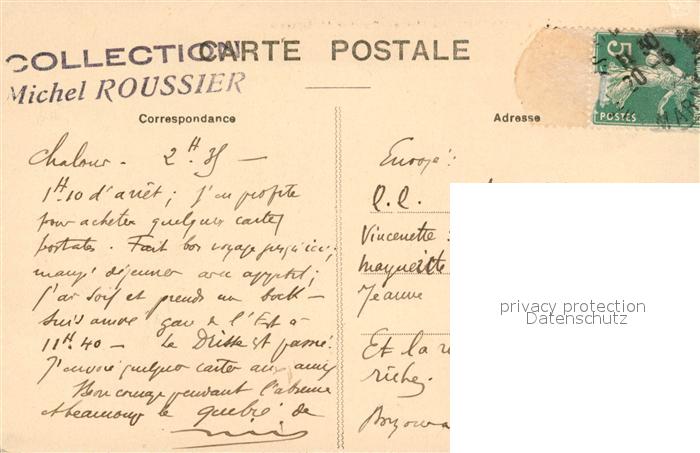 COLLECTION
Michel ROUSSIER
CARTE POSTALE
Correspondance
Adresse
5
POSTES
MARN
Chalons - 2H.35 -
1H.10 d'arrêt ; j'en profite
pour acheter quelques cartes
postales. Fait bon voyage jusqu'ici ;
mangé déjeuner avec appétit ;
j'ai soif et prends un bock -
suis arrivé gare de l'Est à
11H.40 - Le est passé.
J'envoie quelques cartes aux amis
Bon courage pendant l'absence
et beaucoup de
Envoyé :
C.C.
Vincenette :
Marguerite
Jeanne
Et la
riches.
privacy protection
Datenschutz